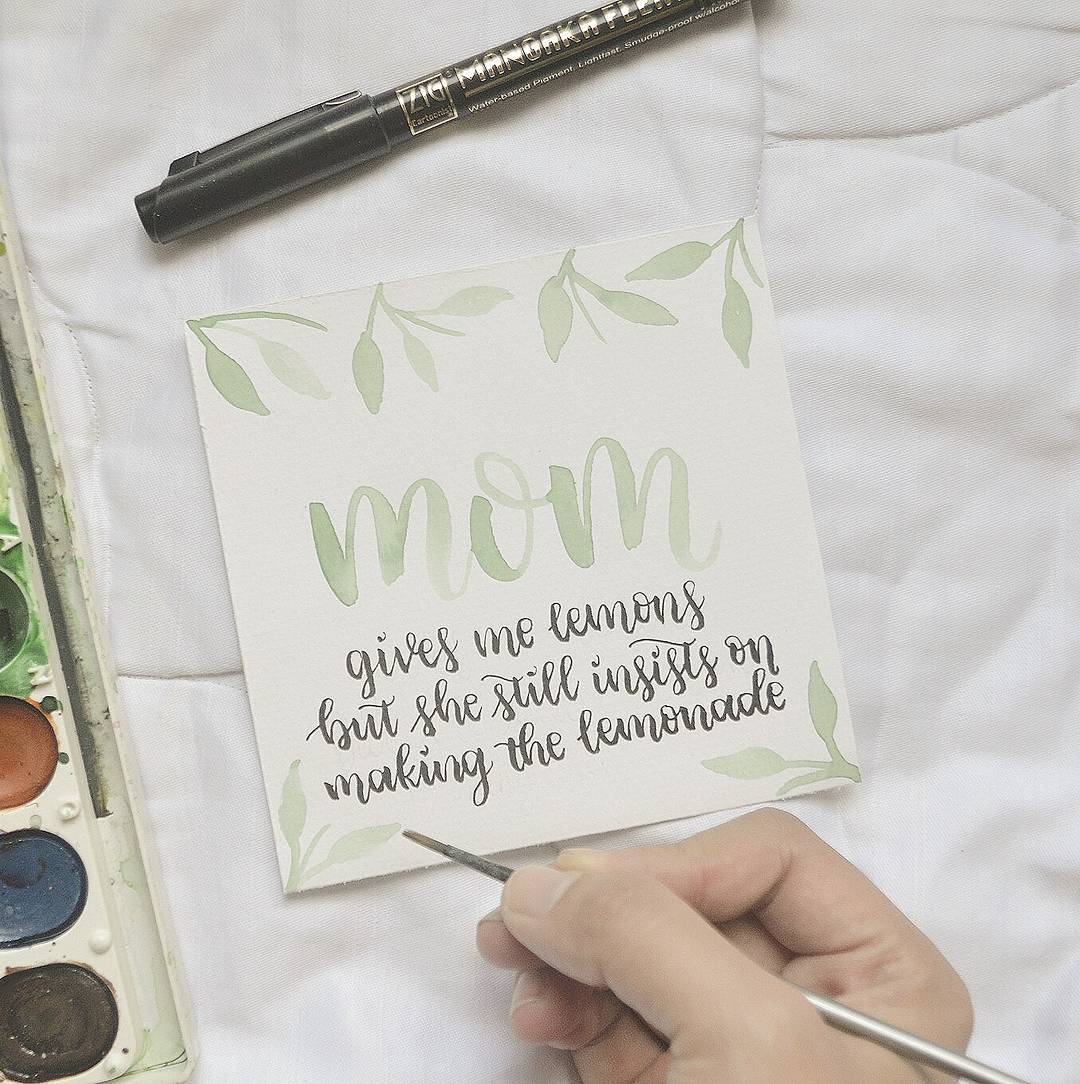 ZIG MANGAKA
Cartoonist
Water-based Pigment. Lightfast. Smudge-proof w/alcohol
mom
gives me lemons
but she still insists on
making the lemonade